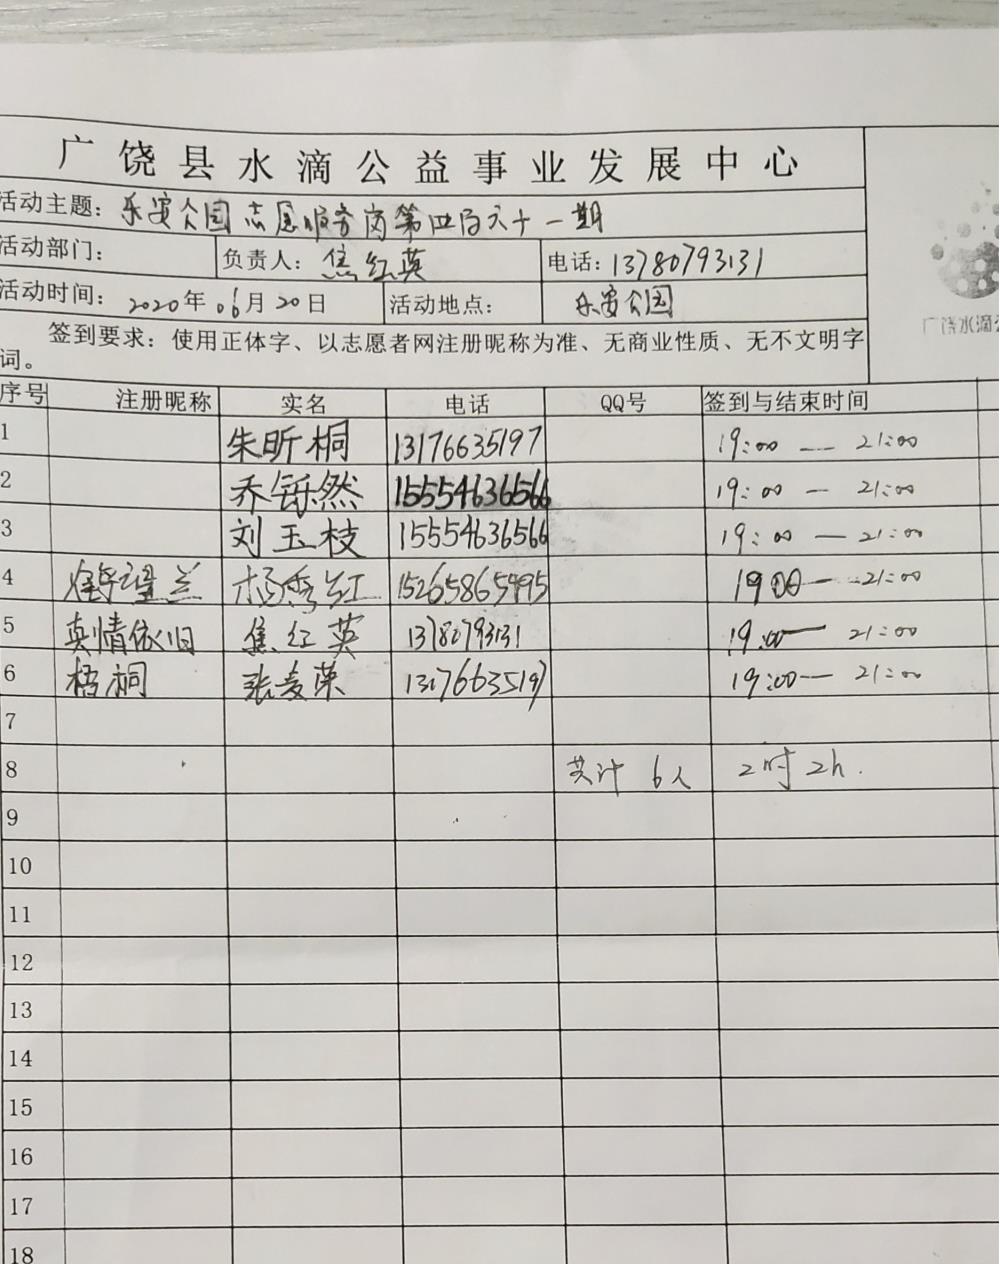 广饶县水滴公益事业发展中心
活动主题：乐安公园志愿服务岗第四百六十一期
活动部门： 负责人：焦红英 电话：13780793131
活动时间：2020年06月20日 活动地点： 乐安公园
签到要求：使用正体字、以志愿者网注册昵称为准、无商业性质、无不文明字
词。
广饶水滴公
序号 注册昵称 实名 电话 QQ号 签到与结束时间
1 朱昕桐 13176635197 19:00 — 21:00
2 乔铄然 15554636566 19:00 — 21:00
3 刘玉枝 15554636566 19:00 — 21:00
4 杨秀红 15265865495 19:00 — 21:00
5 真情依旧 焦红英 13780793131 19:00 — 21:00
6 梧桐 张麦荣 13176635197 19:00 — 21:00
7
8 共计 6人 2时 2h.
9
10
11
12
13
14
15
16
17
18